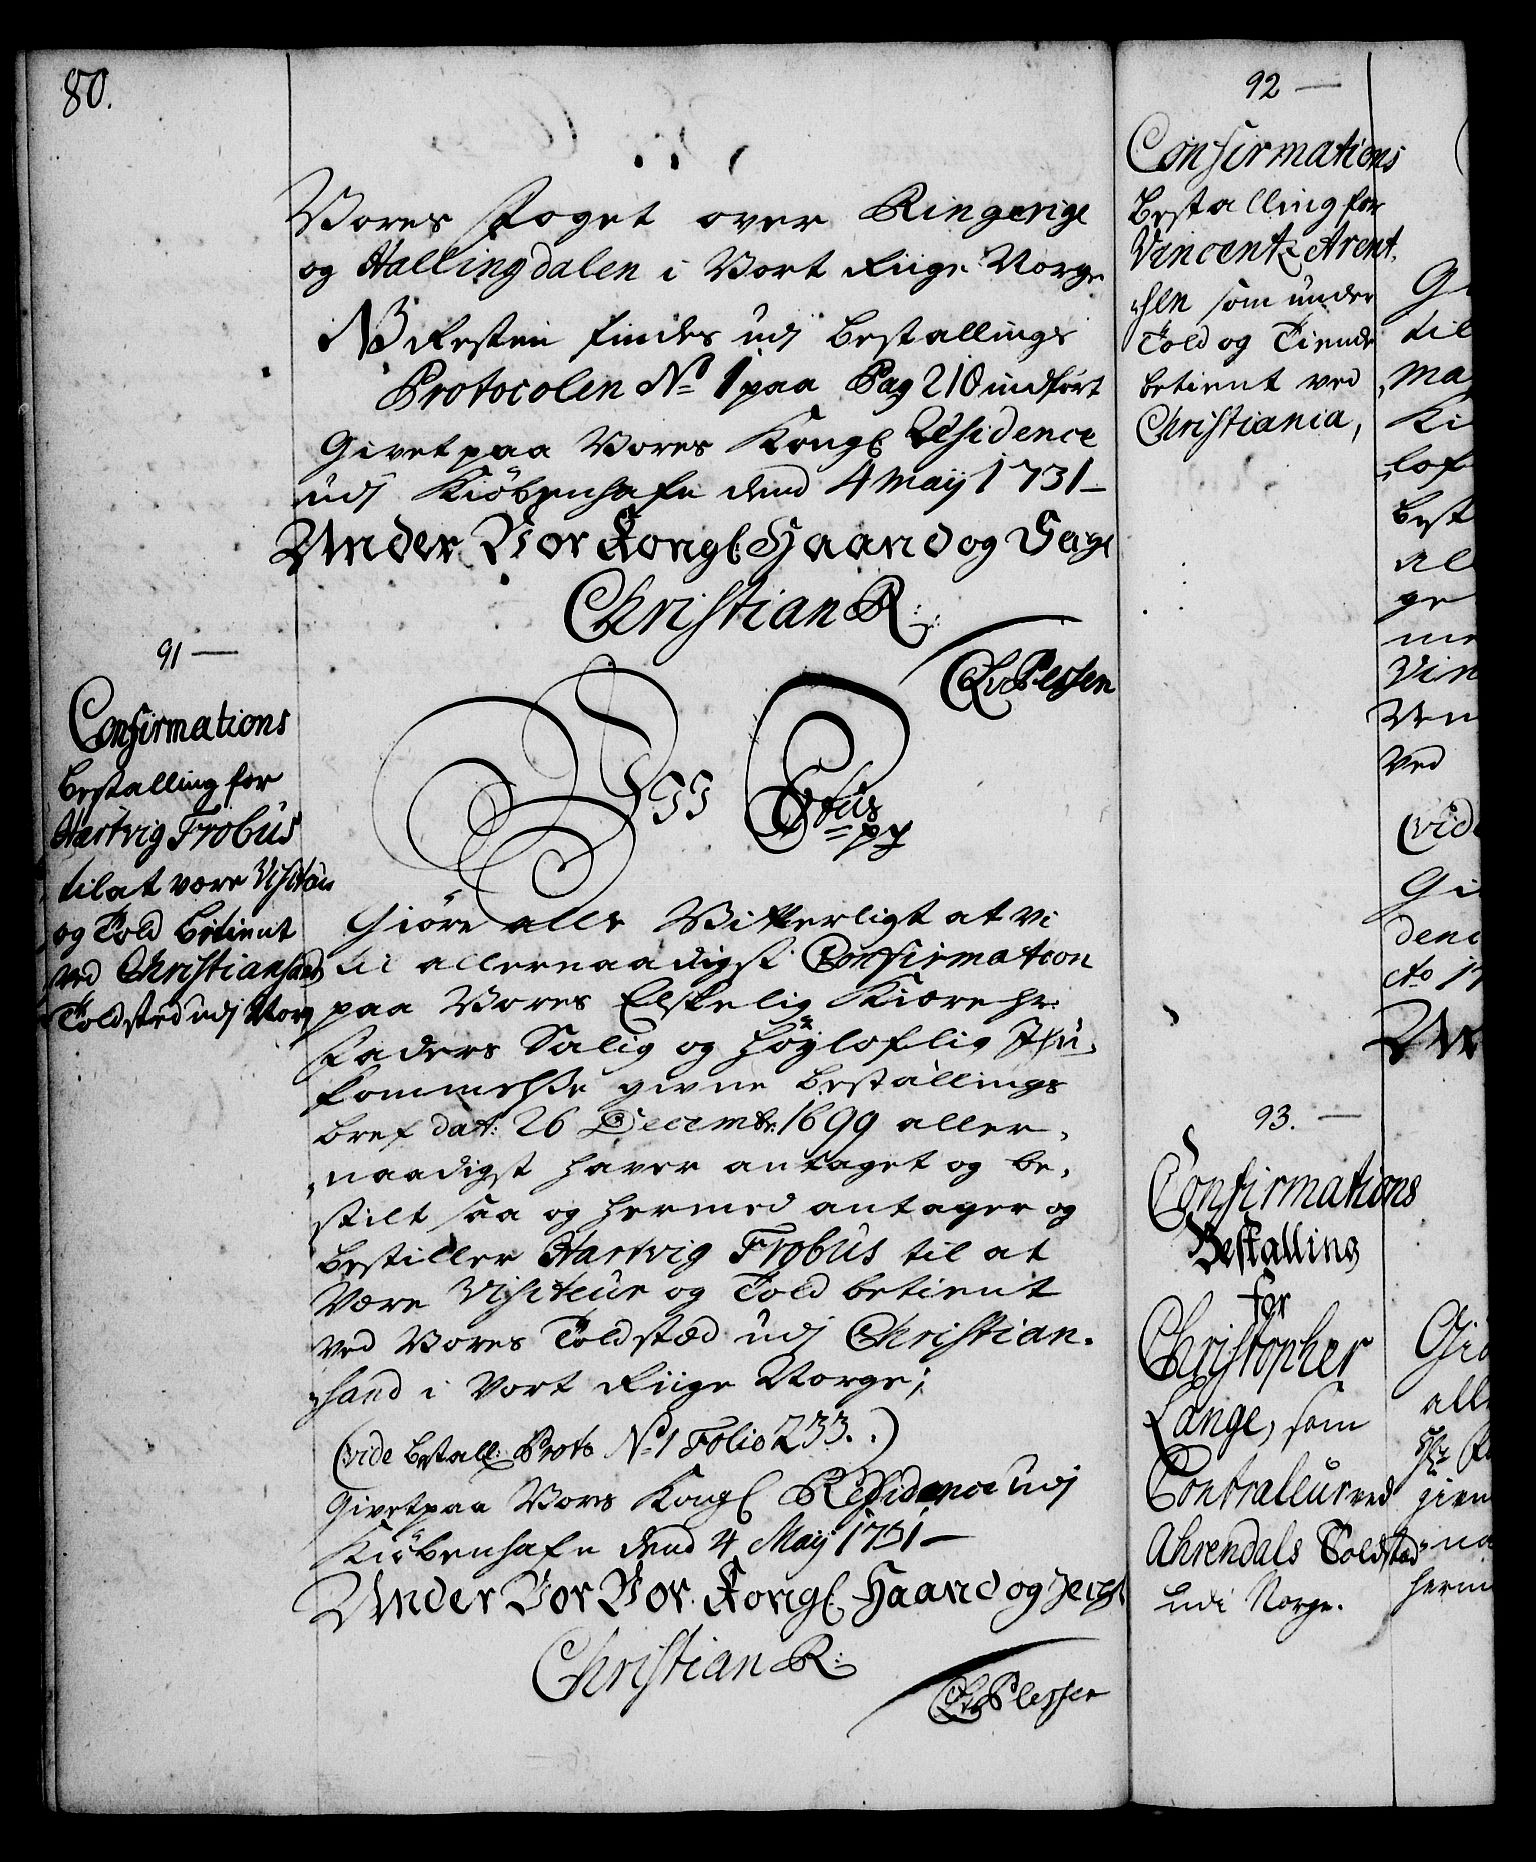 80.
Vores Foget over Ringerige
og Hallingdalen i Vort Riige Norge
NB Resten findes udj Bestallings
Protocolen No 1 paa Pag 210 indført
Givet paa Vores Kongl Residence
udj Kiöbenhafn dend 4 Maij 1731 —
Under Vor Kongl: Haand og Seigl
Christian R:
CAvPlessen
91 —
Confirmations
Bestalling for
Hartvig Frobüs
til at være Visiteur
og Told Betient
ved Christiansands
Toldsted udj Norg
Giöre alle Vitterligt at Vi
til allernaadigst Confirmation
paa Vores Elskelig Kiære Hr:
Faders Salig og Höyloflig Ihu-
kommelsse givne Bestallings
Bref dat: 26 Decembr: 1699 aller-
naadigst haver antaget og be-
stilt saa og hermed antager og
bestiller Hartvig Frobüs til at
Være Visiteur og Told betient
ved Vores Toldstæd udj Christian-
sand i Vort Riige Norge;
(vide Bestall: Proto No 1 Folio 233.)
Givet paa Vors Kongl Residence udj
Kiöbenhafn dend 4 Maij 1731 —
Under Vor Vor Kongl Haand og Seigl
Christian R:
CAvPlessen
92 —
Confirmations
Bestalling for
Vincentz Arent-
sen som under
Told og Tiende
betient ved
Christiania,
93. —
Confirmations
Bestalling
for
Christopher
Lange, som
Contralleur ved
Ahrendals Toldsted
udi Norge.
til
Ki
lof
best
all
ge
Vin
ved
(vide
Gi
denc
Ao 17
Un
Giö
all